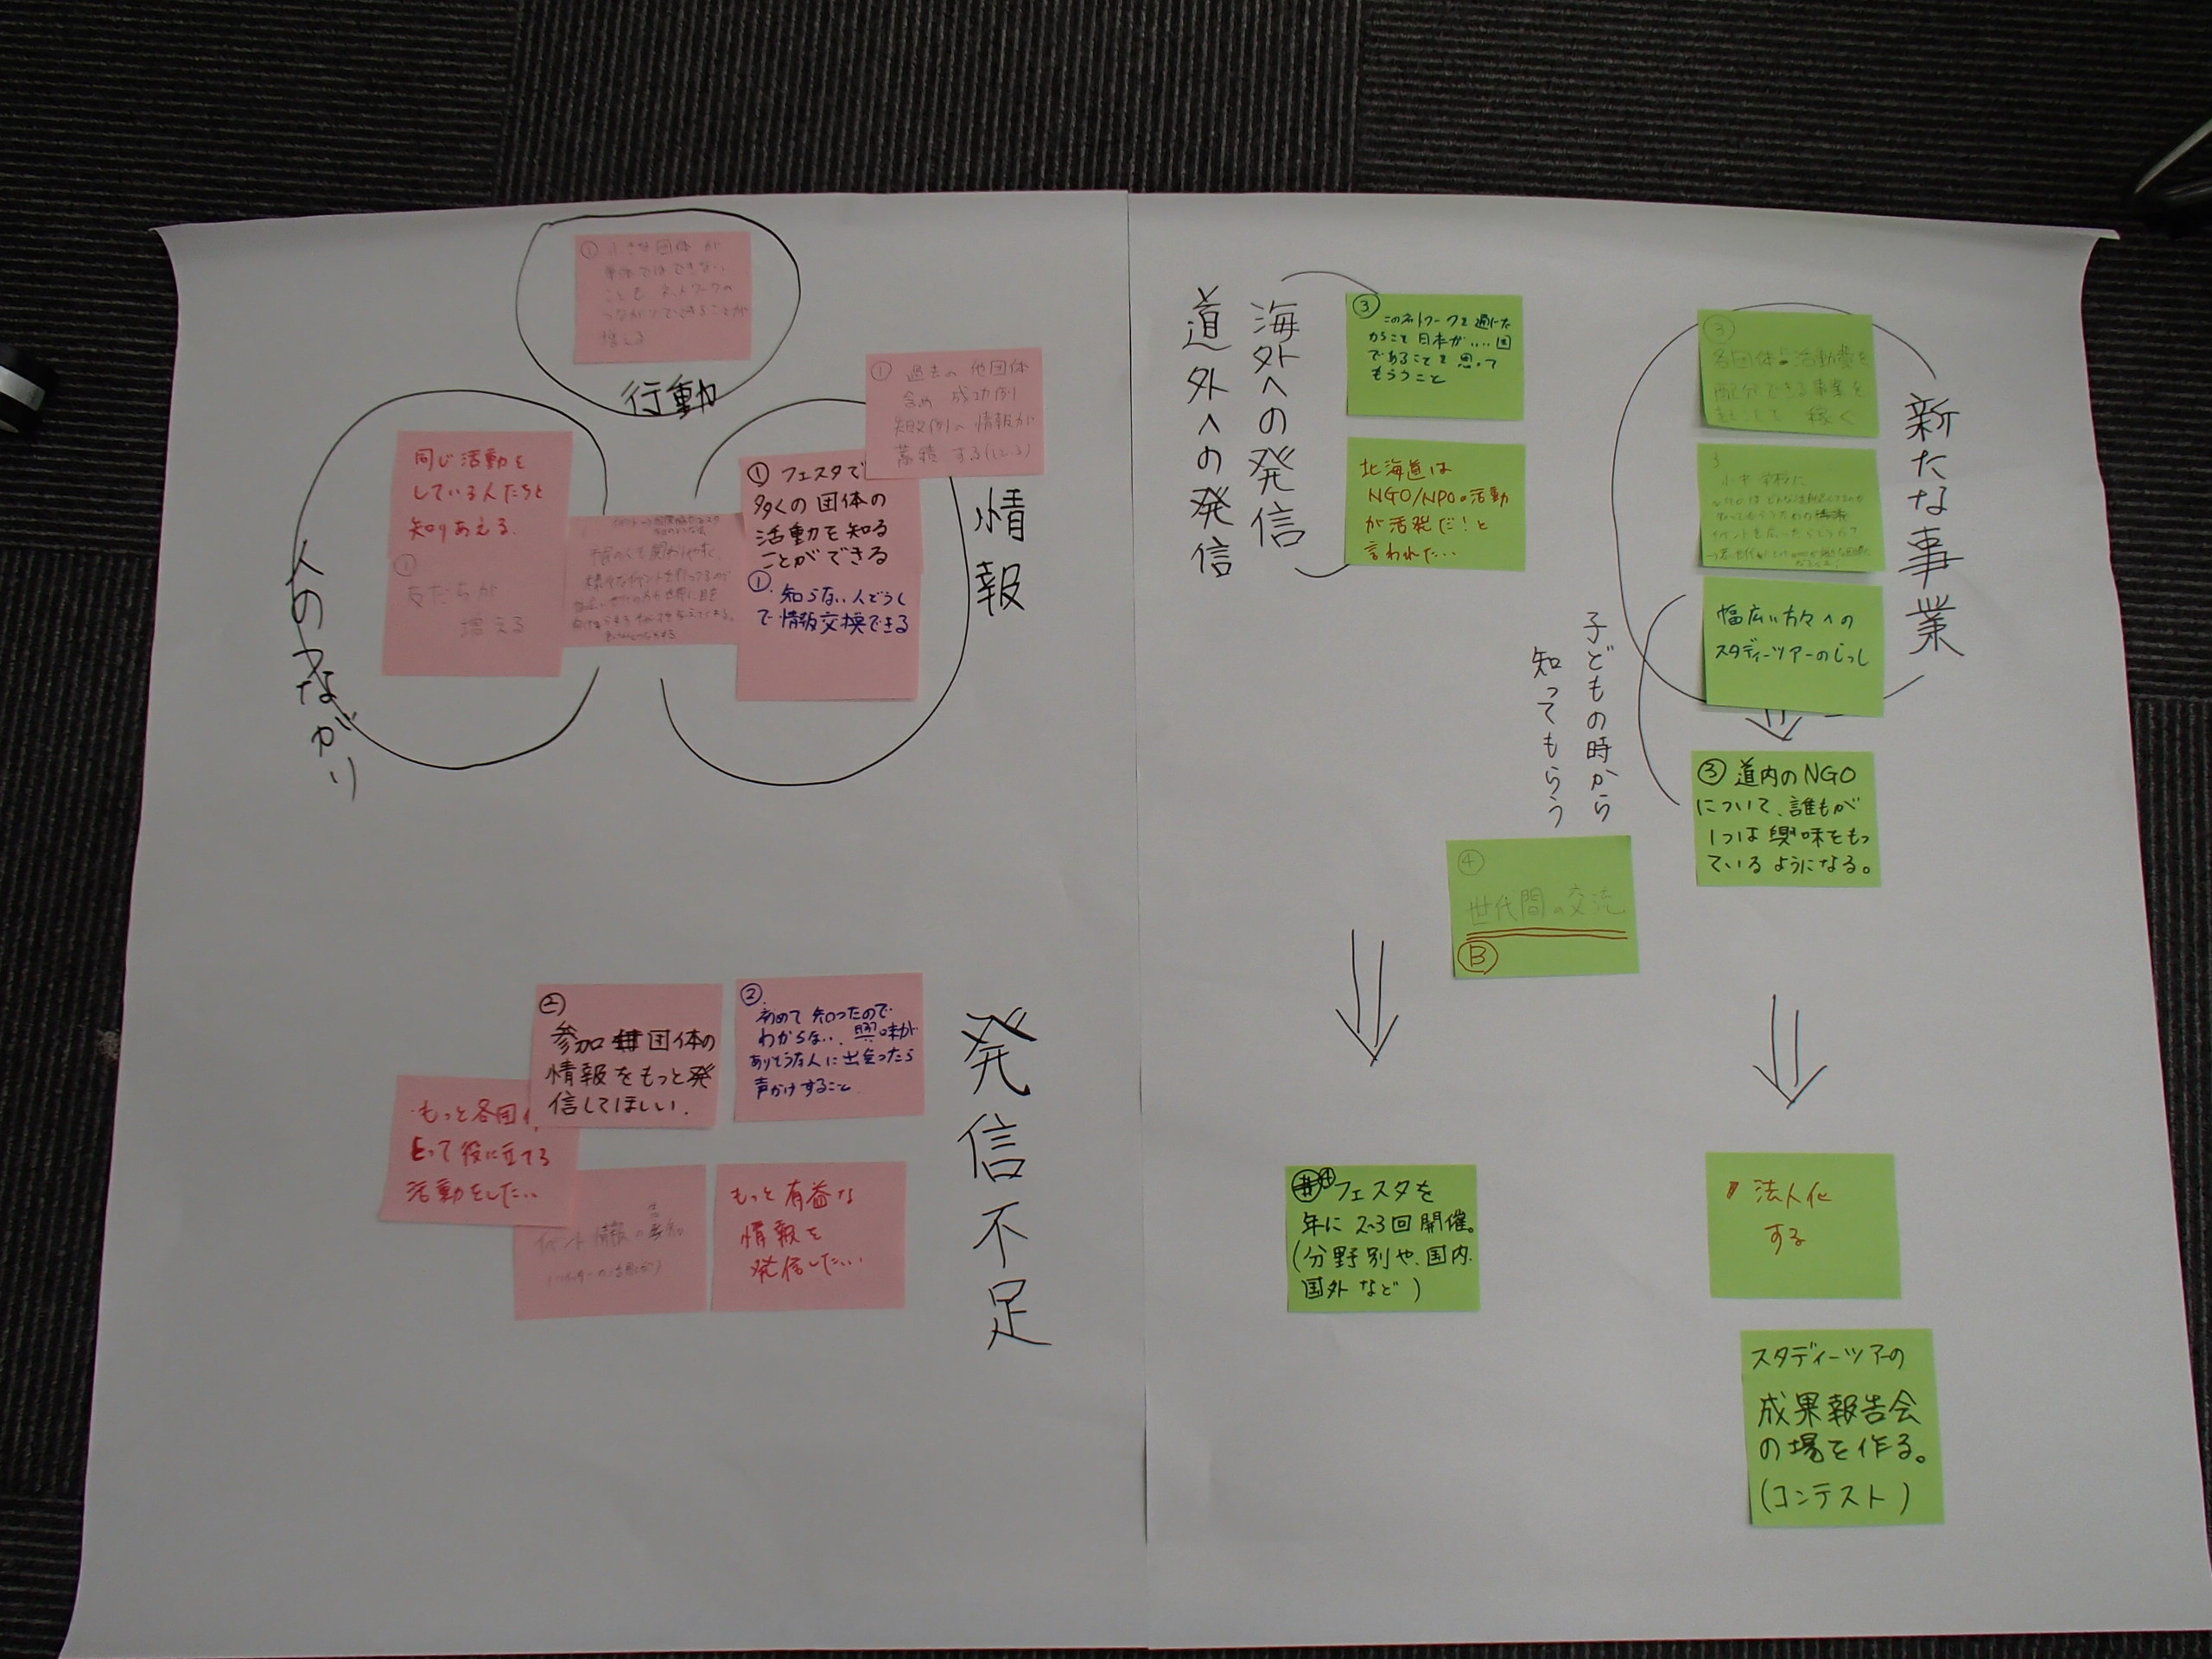 ① 小さな団体が
単体ではできない
ことも ネットワークの
つながりでできることが
増える
行動
① 過去の他団体
含め 成功例
失敗例の情報が
蓄積する
同じ活動を
している人たちと
知りあえる.
①
友だちが
増える
人のつながり
① フェスタで
多くの団体の
活動を知る
ことができる
① 知らない人どうし
で情報交換できる
情報
②
参加団体の
情報をもっと発
信してほしい.
②
初めて知ったので
わからない. 興味が
ありそうな人に出会ったら
声かけすること
もっと各団
とって役に立てる
活動をしたい..
イベント情報の
もっと有益な
情報を
発信したい...
発信不足
道外への発信
海外への発信
③ このネットワークを通じた
からこそ日本が....国
であることを思って
もらうこと
北海道は
NGO/NPOの活動
が活発だ!と
言われたい..
③
各団体に活動費を
配分できる事業を
起こして 稼ぐ
3
小中学校に
幅広い方々への
スタディーツアーのじっし
新たな事業
③ 道内のNGO
について、誰もが
1つは興味をもっ
ているようになる。
子どもの時から
知ってもらう
④
世代間の交流
B
④ フェスタを
年に2~3回開催。
(分野別や、国内.
国外など)
法人化
する
スタディーツアーの
成果報告会
の場を作る。
(コンテスト)